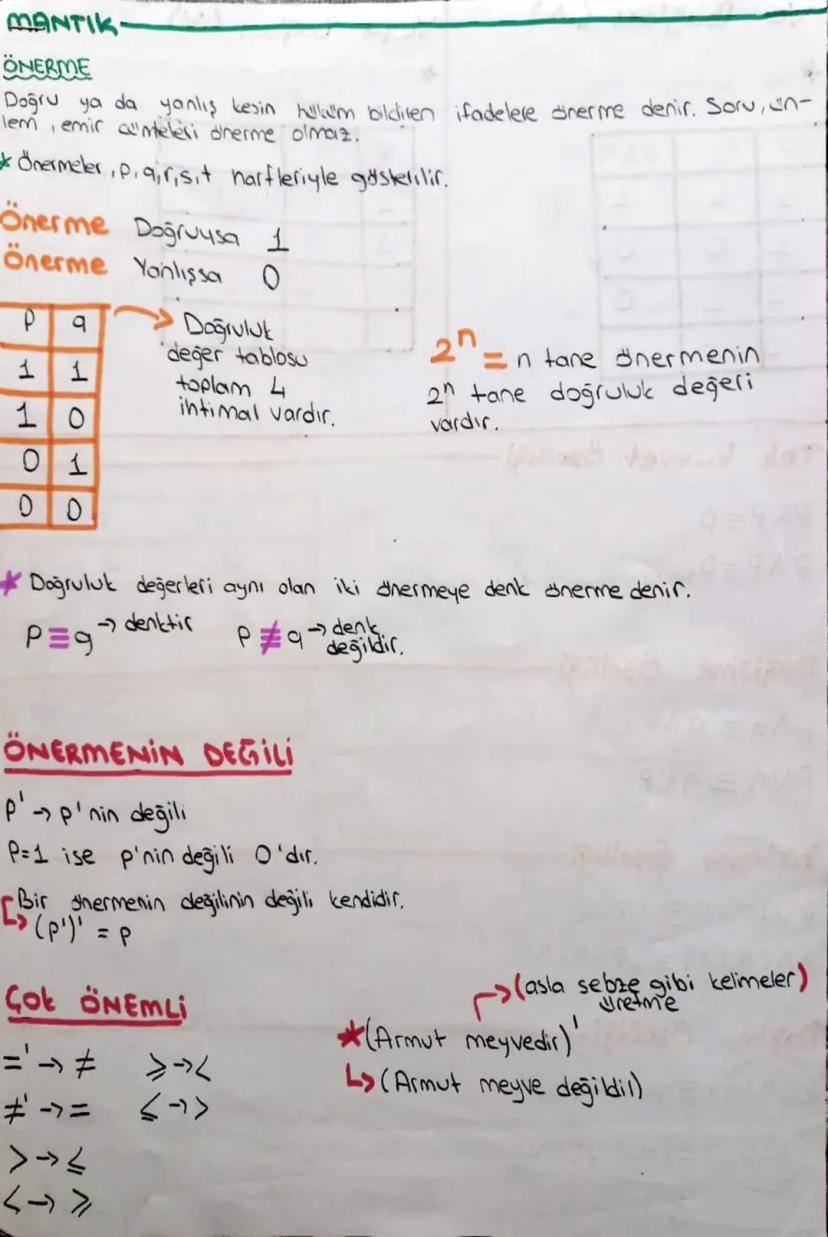 MANTIK
ÖNERME
Doğru ya da yanlış kesin hüküm bildiren ifadelere önerme denir. Soru, ün-
lem, emir cümleleri önerme olmaz.
* Önermeler, p, q, r, s, t harfleriyle gösterilir.
Önerme Doğruysa 1
Önerme Yanlışsa 0
p q
1 1
1 0
0 1
0 0
→ Doğruluk
değer tablosu
toplam 4
ihtimal vardır.
2ⁿ = n tane önermenin
2ⁿ tane doğruluk değeri
vardır.
* Doğruluk değerleri aynı olan iki önermeye denk önerme denir.
P ≡ q → denktir P ≢ q → denk
değildir.
ÖNERMENİN DEĞİLİ
p' → p'nin değili
P=1 ise p'nin değili 0'dır.
Bir önermenin değilinin değili kendidir.
↳ (p')' = p
ÇOK ÖNEMLİ
=' → ≠ ⩾ → <
≠' → = ⩽ → >
> → ⩽
< → ⩾
→ (asla sebze gibi kelimeler)
üretme
* (Armut meyvedir)'
↳ (Armut meyve değildir)